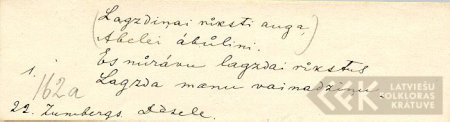 Lagzdiņai rīksti auga,
Abelei ābūliņi.
Es nūrāvu lagzdai rīkstus
1. Lagzda manu vainadziņu.
162a
22. Zumbergs. Adsele.
LATVIEŠU
FOLKLORAS
KRĀTUVE